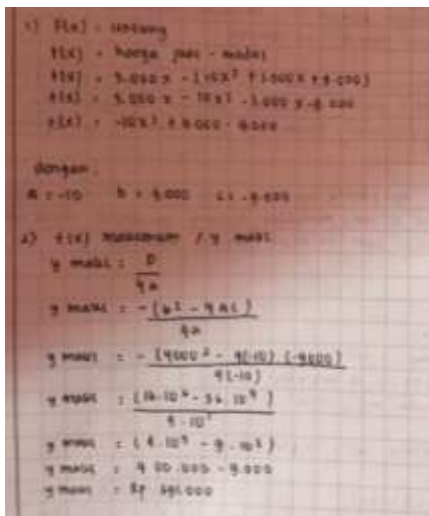 1) f(x) = untung
f(x) = harga jual - modal
f(x) = 5.000x - (10x² + 1.000x + 9.000)
f(x) = 5.000x - 10x² - 1.000x - 9.000
f(x) = -10x² + 4.000 - 9.000
dengan :
a = -10 b = 4.000 c = -9.000
2) f(x) maksimum / y maks
y maks = D
4a
y maks = - (b² - 4ac)
4a
y maks = - (4000² - 4(-10) (-9000)
4(-10)
y maks = (16.10⁶ - 36.10⁴)
4.10¹
y maks = (4.10⁵ - 9.10³)
y maks = 400.000 - 9.000
y maks = Rp 391.000